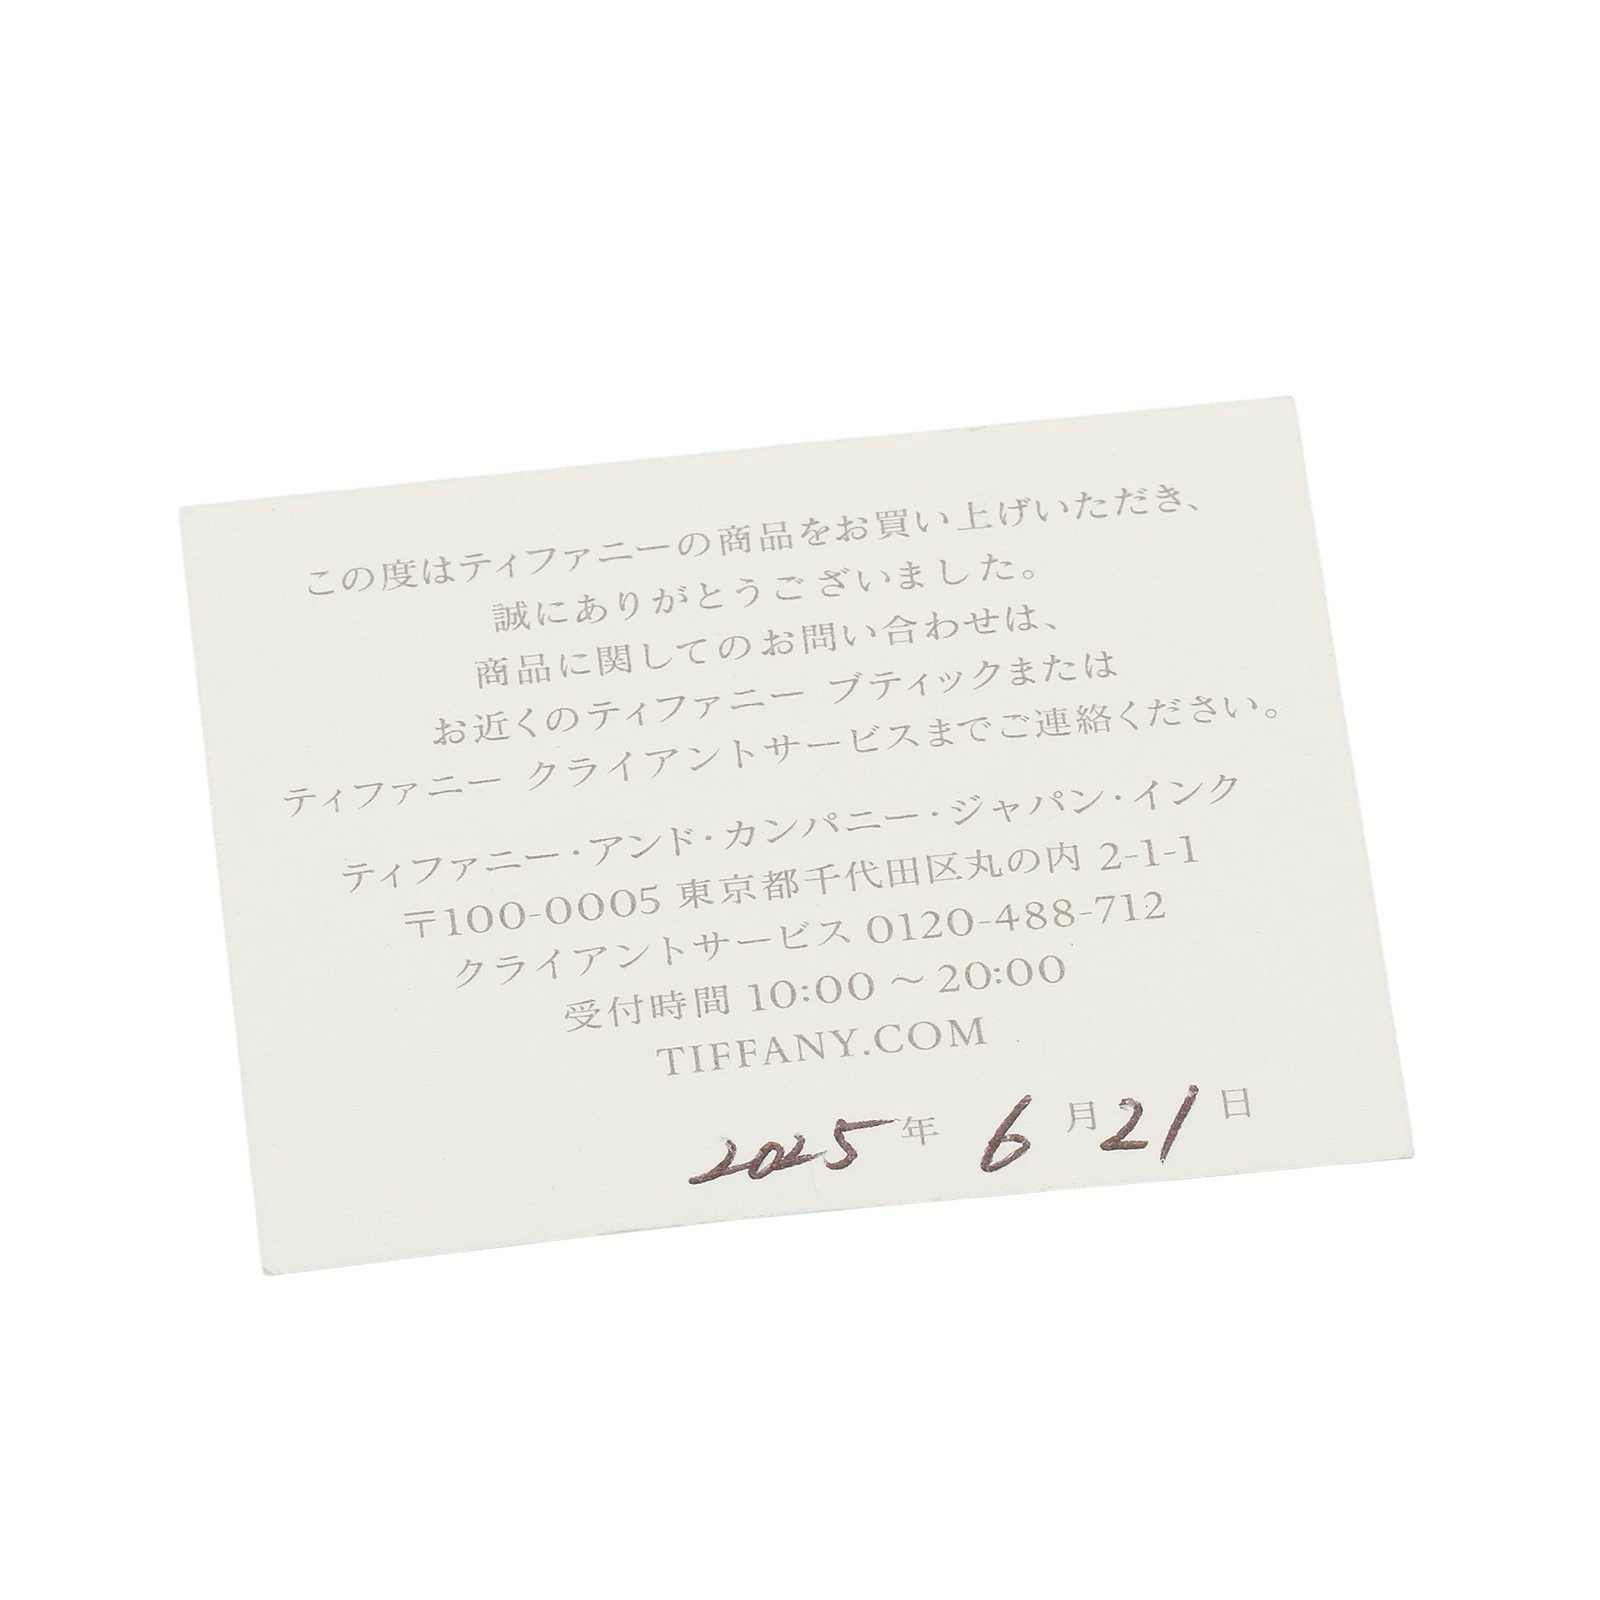 この度はティファニーの商品をお買い上げいただき、
誠にありがとうございました。
商品に関してのお問い合わせは、
お近くのティファニー ブティックまたは
ティファニー クライアントサービスまでご連絡ください。
ティファニー・アンド・カンパニー・ジャパン・インク
〒100-0005 東京都千代田区丸の内 2-1-1
クライアントサービス 0120-488-712
受付時間 10:00 〜 20:00
TIFFANY.COM
2025年 6月21日